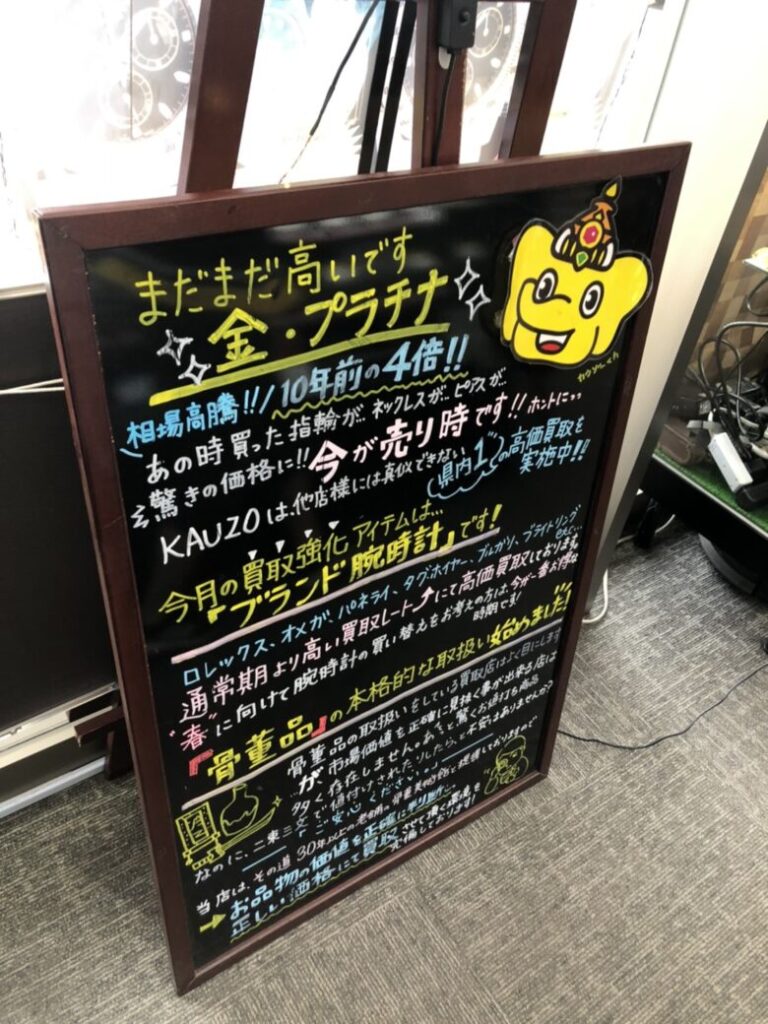 まだまだ高いです
金・プラチナ
相場高騰!!/10年前の4倍!!
あの時買った指輪が‥ネックレスが‥ピアスが‥
驚きの価格に!!今が売り時です!!ホントにッッ
KAUZOは他店様には真似できない県内1の高価買取を実施中!!
カウゾーくん
今月の買取強化アイテムは…
『ブランド腕時計』です!
ロレックス、オメガ、パネライ、タグ・ホイヤー、ブルガリ、ブライトリング etc…
通常期より高い買取レートにて高価買取しております。
"春"に向けて腕時計の買い替えをお考えの方は、今が一番お得な時期です!
『骨董品』の本格的な取扱い始めました!
骨董品の取扱いをしている買取店はよく目にしますが
市場価値を正確に見抜く事が出来る店は
多く存在しません。
お値打ち商品
なのに、二束三文で値付けされたりしたら、不安はありませんか?
ご安心ください
当店は、その道30年以上の
と提携しておりますので
→お品物の価値を正確に判断し
正しい価格にて買取させて頂く
しております!